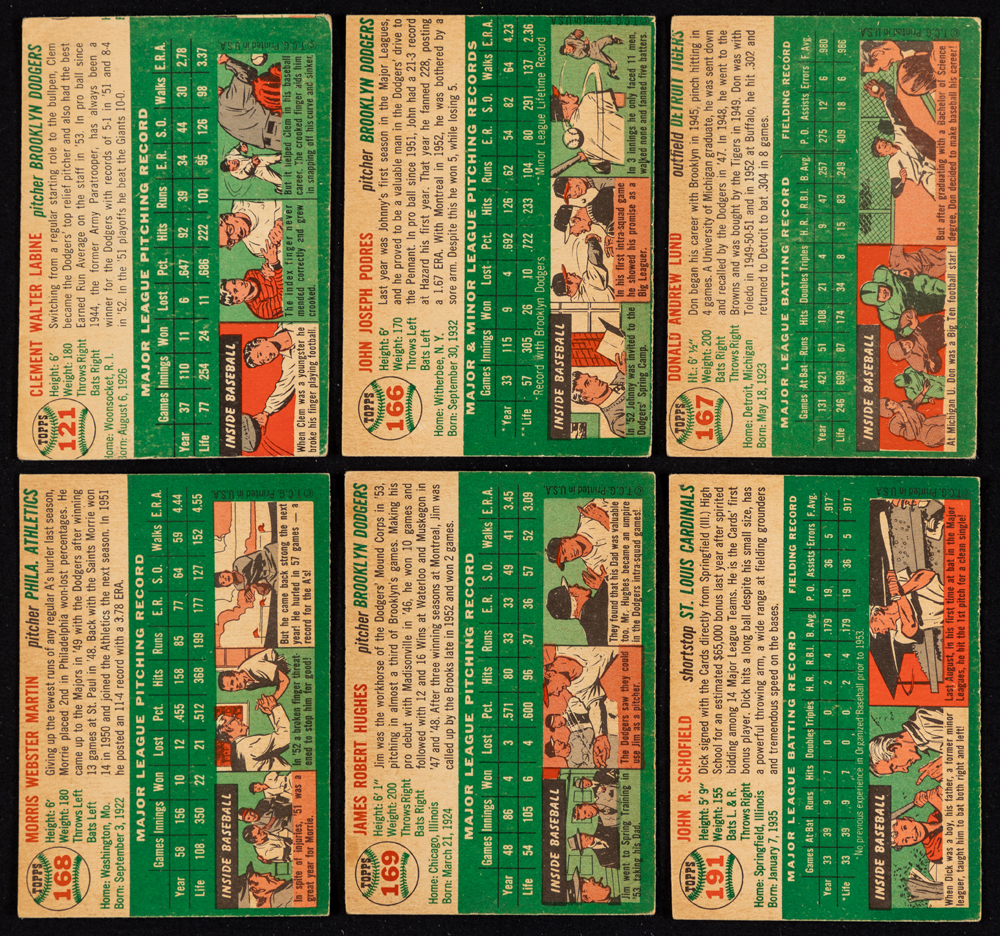 TOPPS
121
CLEMENT WALTER LABINE pitcher BROOKLYN DODGERS
Height: 6'
Weight: 180
Throws Right
Bats Right
Home: Woonsocket, R. I.
Born: August 6, 1926
Switching from a regular starting role to the bullpen, Clem
became the Dodgers' top relief pitcher and also had the best
Earned Run Average on the staff in '53. In pro ball since
1944, the former Army Paratrooper, has always been a
winner for the Dodgers with records of 5-1 in '51 and 8-4
in '52. In the '51 playoffs he beat the Giants 10-0.
MAJOR LEAGUE PITCHING RECORD
Games Innings Won Lost Pct. Hits Runs E.R. S.O. Walks E.R.A.
Year 37 110 11 6 .647 92 39 34 44 30 2.78
Life 77 254 24 11 .686 222 101 95 126 98 3.37
INSIDE BASEBALL
When Clem was a youngster he
broke his finger playing football.
The index finger never
mended correctly and grew
crooked.
But it helped Clem in his baseball
career. The crooked finger aids him
in snapping off his curve and sinker.
© T.C.G. Printed in U.S.A.
TOPPS
166
JOHN JOSEPH PODRES pitcher BROOKLYN DODGERS
Height: 6'
Weight: 170
Throws Left
Bats Left
Home: Witherbee, N. Y.
Born: September 30, 1932
Last year was Johnny's first season in the Major Leagues,
and he proved to be a valuable man in the Dodgers' drive to
the Pennant. In pro ball since 1951, John had a 21-3 record
at Hazard his first year. That year he fanned 228, posting
a 1.67 ERA. With Montreal in 1952, he was bothered by a
sore arm. Despite this he won 5, while losing 5.
MAJOR & MINOR LEAGUE PITCHING RECORDS
Games Innings Won Lost Pct. Hits Runs E.R. S.O. Walks E.R.A.
*Year 33 115 9 4 .692 126 62 54 82 64 4.23
**Life 57 305 26 10 .722 233 104 80 291 137 2.36
*Record with Brooklyn Dodgers **Minor League Lifetime Record
INSIDE BASEBALL
In '52 Johnny was invited to the
Dodgers' Spring Camp.
In his first intra-squad game
he showed his promise as a
Big Leaguer.
In 3 innings he only faced 11 men,
walked none and fanned five batters.
© T.C.G. Printed in U.S.A.
TOPPS
167
DONALD ANDREW LUND outfield DETROIT TIGERS
Ht.: 6' ½"
Weight: 200
Throws Right
Bats Right
Home: Detroit, Michigan
Born: May 18, 1923
Don began his career with Brooklyn in 1945, pinch hitting in
4 games. A University of Michigan graduate, he was sent down
and recalled by the Dodgers in '47. In 1948, he went to the
Browns and was bought by the Tigers in 1949. Don was with
Toledo in 1949-50-51 and in 1952 at Buffalo, he hit .302 and
returned to Detroit to bat .304 in 8 games.
MAJOR LEAGUE BATTING RECORD FIELDING RECORD
Games At Bat Runs Hits Doubles Triples H. R. R.B.I. B. Avg. P. O. Assists Errors F. Avg.
Year 131 421 51 108 21 4 9 47 .257 275 12 6 .980
Life 246 699 87 174 34 8 15 83 .249 409 18 6 .986
INSIDE BASEBALL
At Michigan U. Don was a Big Ten football star!
But after graduating with a Bachelor of Science
degree, Don decided to make baseball his career.
© T.C.G. Printed in U.S.A.
TOPPS
168
MORRIS WEBSTER MARTIN pitcher PHILA. ATHLETICS
Height: 6'
Weight: 180
Throws Left
Bats Left
Home: Washington, Mo.
Born: September 3, 1922
Giving up the fewest runs of any regular A's hurler last season,
Morrie placed 2nd in Philadelphia won-lost percentages. He
came up to the Majors in '49 with the Dodgers after winning
13 games at St. Paul in '48. Back with the Saints Morrie won
14 in 1950 and joined the Athletics the next season. In 1951
he posted an 11-4 record with a 3.78 ERA.
MAJOR LEAGUE PITCHING RECORD
Games Innings Won Lost Pct. Hits Runs E.R. S.O. Walks E.R.A.
Year 58 156 10 12 .455 158 85 77 64 59 4.44
Life 108 350 22 21 .512 368 199 177 127 152 4.55
INSIDE BASEBALL
In spite of injuries, '51 was a
great year for Morrie.
In '52 a broken finger threat-
ened to stop him for good!
But he came back strong the next
year! He hurled in 57 games — a
record for the A's!
© T.C.G. Printed in U.S.A.
TOPPS
169
JAMES ROBERT HUGHES pitcher BROOKLYN DODGERS
Height: 6' 1"
Weight: 200
Throws Right
Bats Right
Home: Chicago, Illinois
Born: March 21, 1924
Jim was the workhorse of the Dodgers' Mound Corps in '53,
pitching in almost a third of Brooklyn's games. Making his
pro debut with Madisonville in '46, he won 10 games and
followed with 12 and 16 Wins at Waterloo and Muskegon in
'47 and '48. After three winning seasons at Montreal, Jim was
called up by the Brooks late in 1952 and won 2 games.
MAJOR LEAGUE PITCHING RECORD
Games Innings Won Lost Pct. Hits Runs E.R. S.O. Walks E.R.A.
Year 48 86 4 3 .571 80 33 33 49 41 3.45
Life 54 105 6 4 .600 96 37 36 57 52 3.09
INSIDE BASEBALL
Jim went to Spring Training in
'53, taking his Dad.
The Dodgers saw they could
use Jim as a hurler.
They found that his Dad was valuable
too. Mr. Hughes became an umpire
in the Dodgers intra-squad games!
© T.C.G. Printed in U.S.A.
TOPPS
191
JOHN R. SCHOFIELD shortstop ST. LOUIS CARDINALS
Height: 5' 9"
Weight: 155
Bats L. & R.
Throws Right
Home: Springfield, Illinois
Born: January 7, 1935
Dick signed with the Cards directly from Springfield (Ill.) High
School for an estimated $65,000 bonus last year after spirited
bidding among 14 Major League Teams. He is the Cards' first
bonus player. Dick hits a long ball despite his small size, has
a powerful throwing arm, a wide range at fielding grounders
and tremendous speed on the bases.
MAJOR LEAGUE BATTING RECORD FIELDING RECORD
Games At Bat Runs Hits Doubles Triples H.R. R.B.I. B. Avg. P. O. Assists Errors F. Avg.
Year 33 39 9 7 0 0 2 4 .179 19 36 5 .917
*Life 33 39 9 7 0 0 2 4 .179 19 36 5 .917
*No previous experience in Organized Baseball prior to 1953
INSIDE BASEBALL
When Dick was a boy, his father, a former minor
leaguer, taught him to bat both right and left!
Last August, in his first time at bat in the Major
Leagues, he hit the 1st pitch for a clean single!
© T.C.G. Printed in U.S.A.